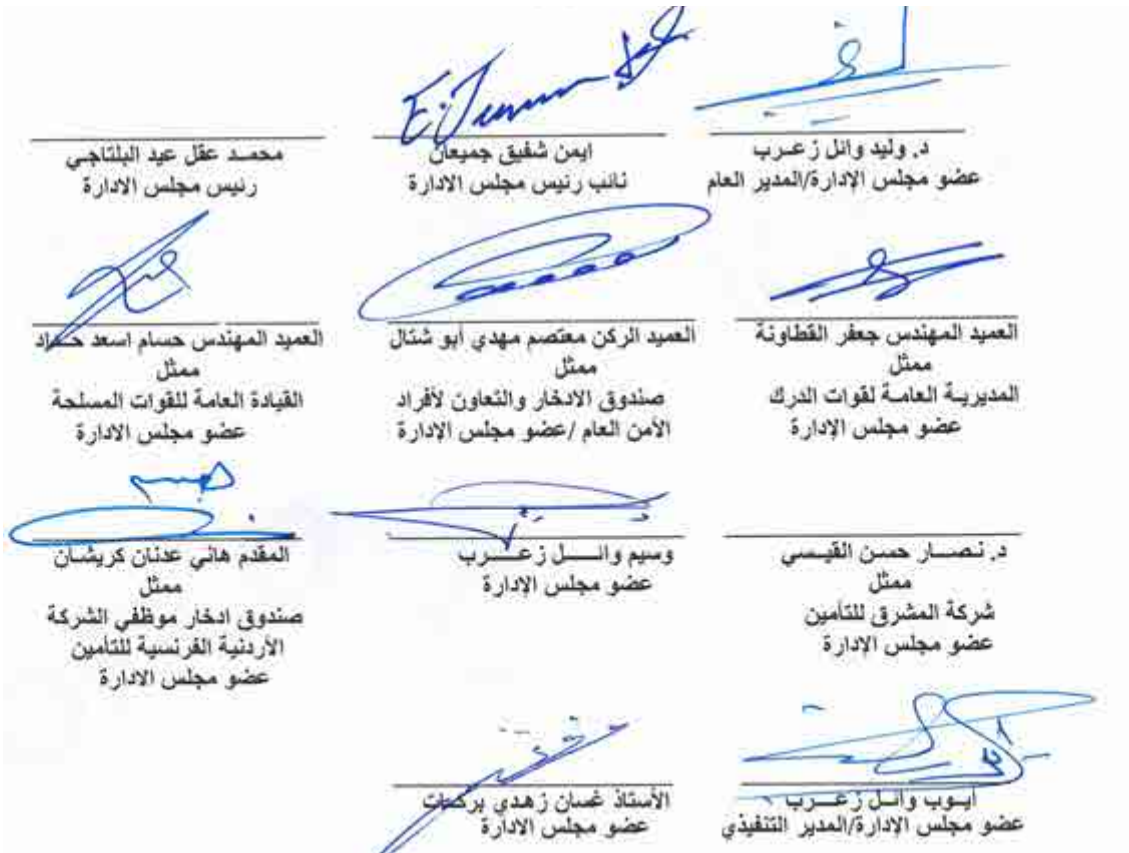 د. وليد وائل زعـرب
عضو مجلس الإدارة/المدير العام
ايمن شفيق جميعان
نائب رئيس مجلس الادارة
محمـد عقل عيد البلتاجي
رئيس مجلس الادارة
العميد المهندس جعفر القطاونة
ممثل
المديريـة العامـة لقوات الدرك
عضو مجلس الإدارة
العميد الركن معتصم مهدي أبو شتال
ممثل
صندوق الادخار والتعاون لأفراد
الأمن العام /عضو مجلس الإدارة
العميد المهندس حسام اسعد حـداد
ممثل
القيادة العامة للقوات المسلحة
عضو مجلس الادارة
د. نـصـــار حسن القيـسي
ممثل
شركة المشرق للتأمين
عضو مجلس الإدارة
وسيم وائـــل زعــرب
عضو مجلس الإدارة
المقدم هاني عدنان كريشـان
ممثل
صندوق ادخار موظفي الشركة
الأردنية الفرنسية للتأمين
عضو مجلس الادارة
أيـوب وائـل زعــرب
عضو مجلس الإدارة/المدير التنفيذي
الأستاذ غسان زهدي بركـات
عضو مجلس الادارة